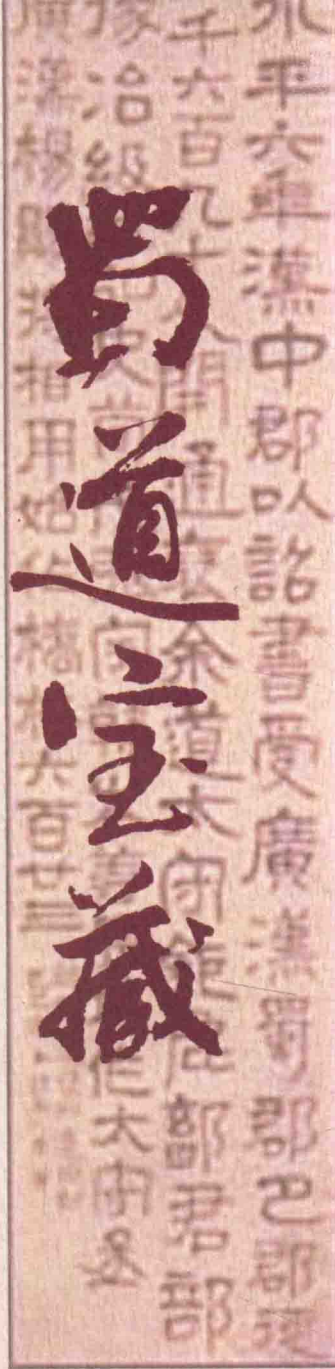 蜀道宝藏
平六年漢中郡以詔書受廣漢蜀郡巴郡徒
千六百九十人開通褒余道太守鉅鹿鄐君部
掾治級史荀作太守丞
廣漢楊顯將相用始作橋格六百廿三